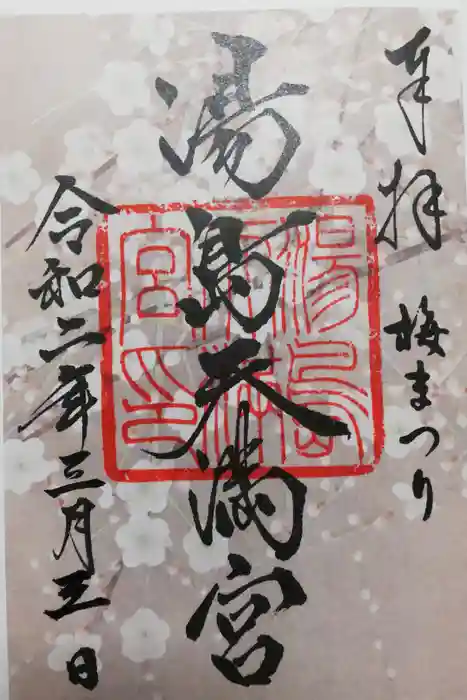 奉拝 梅まつり
湯島天満宮
令和二年三月三日
湯島
天満
宮印